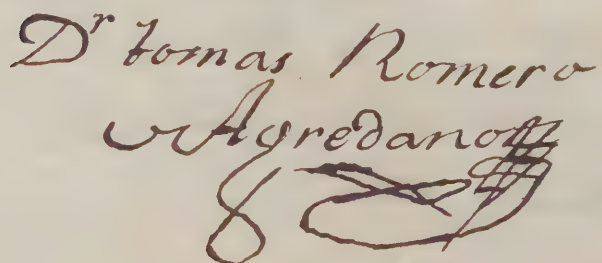 Dr tomas Romero
Agredano